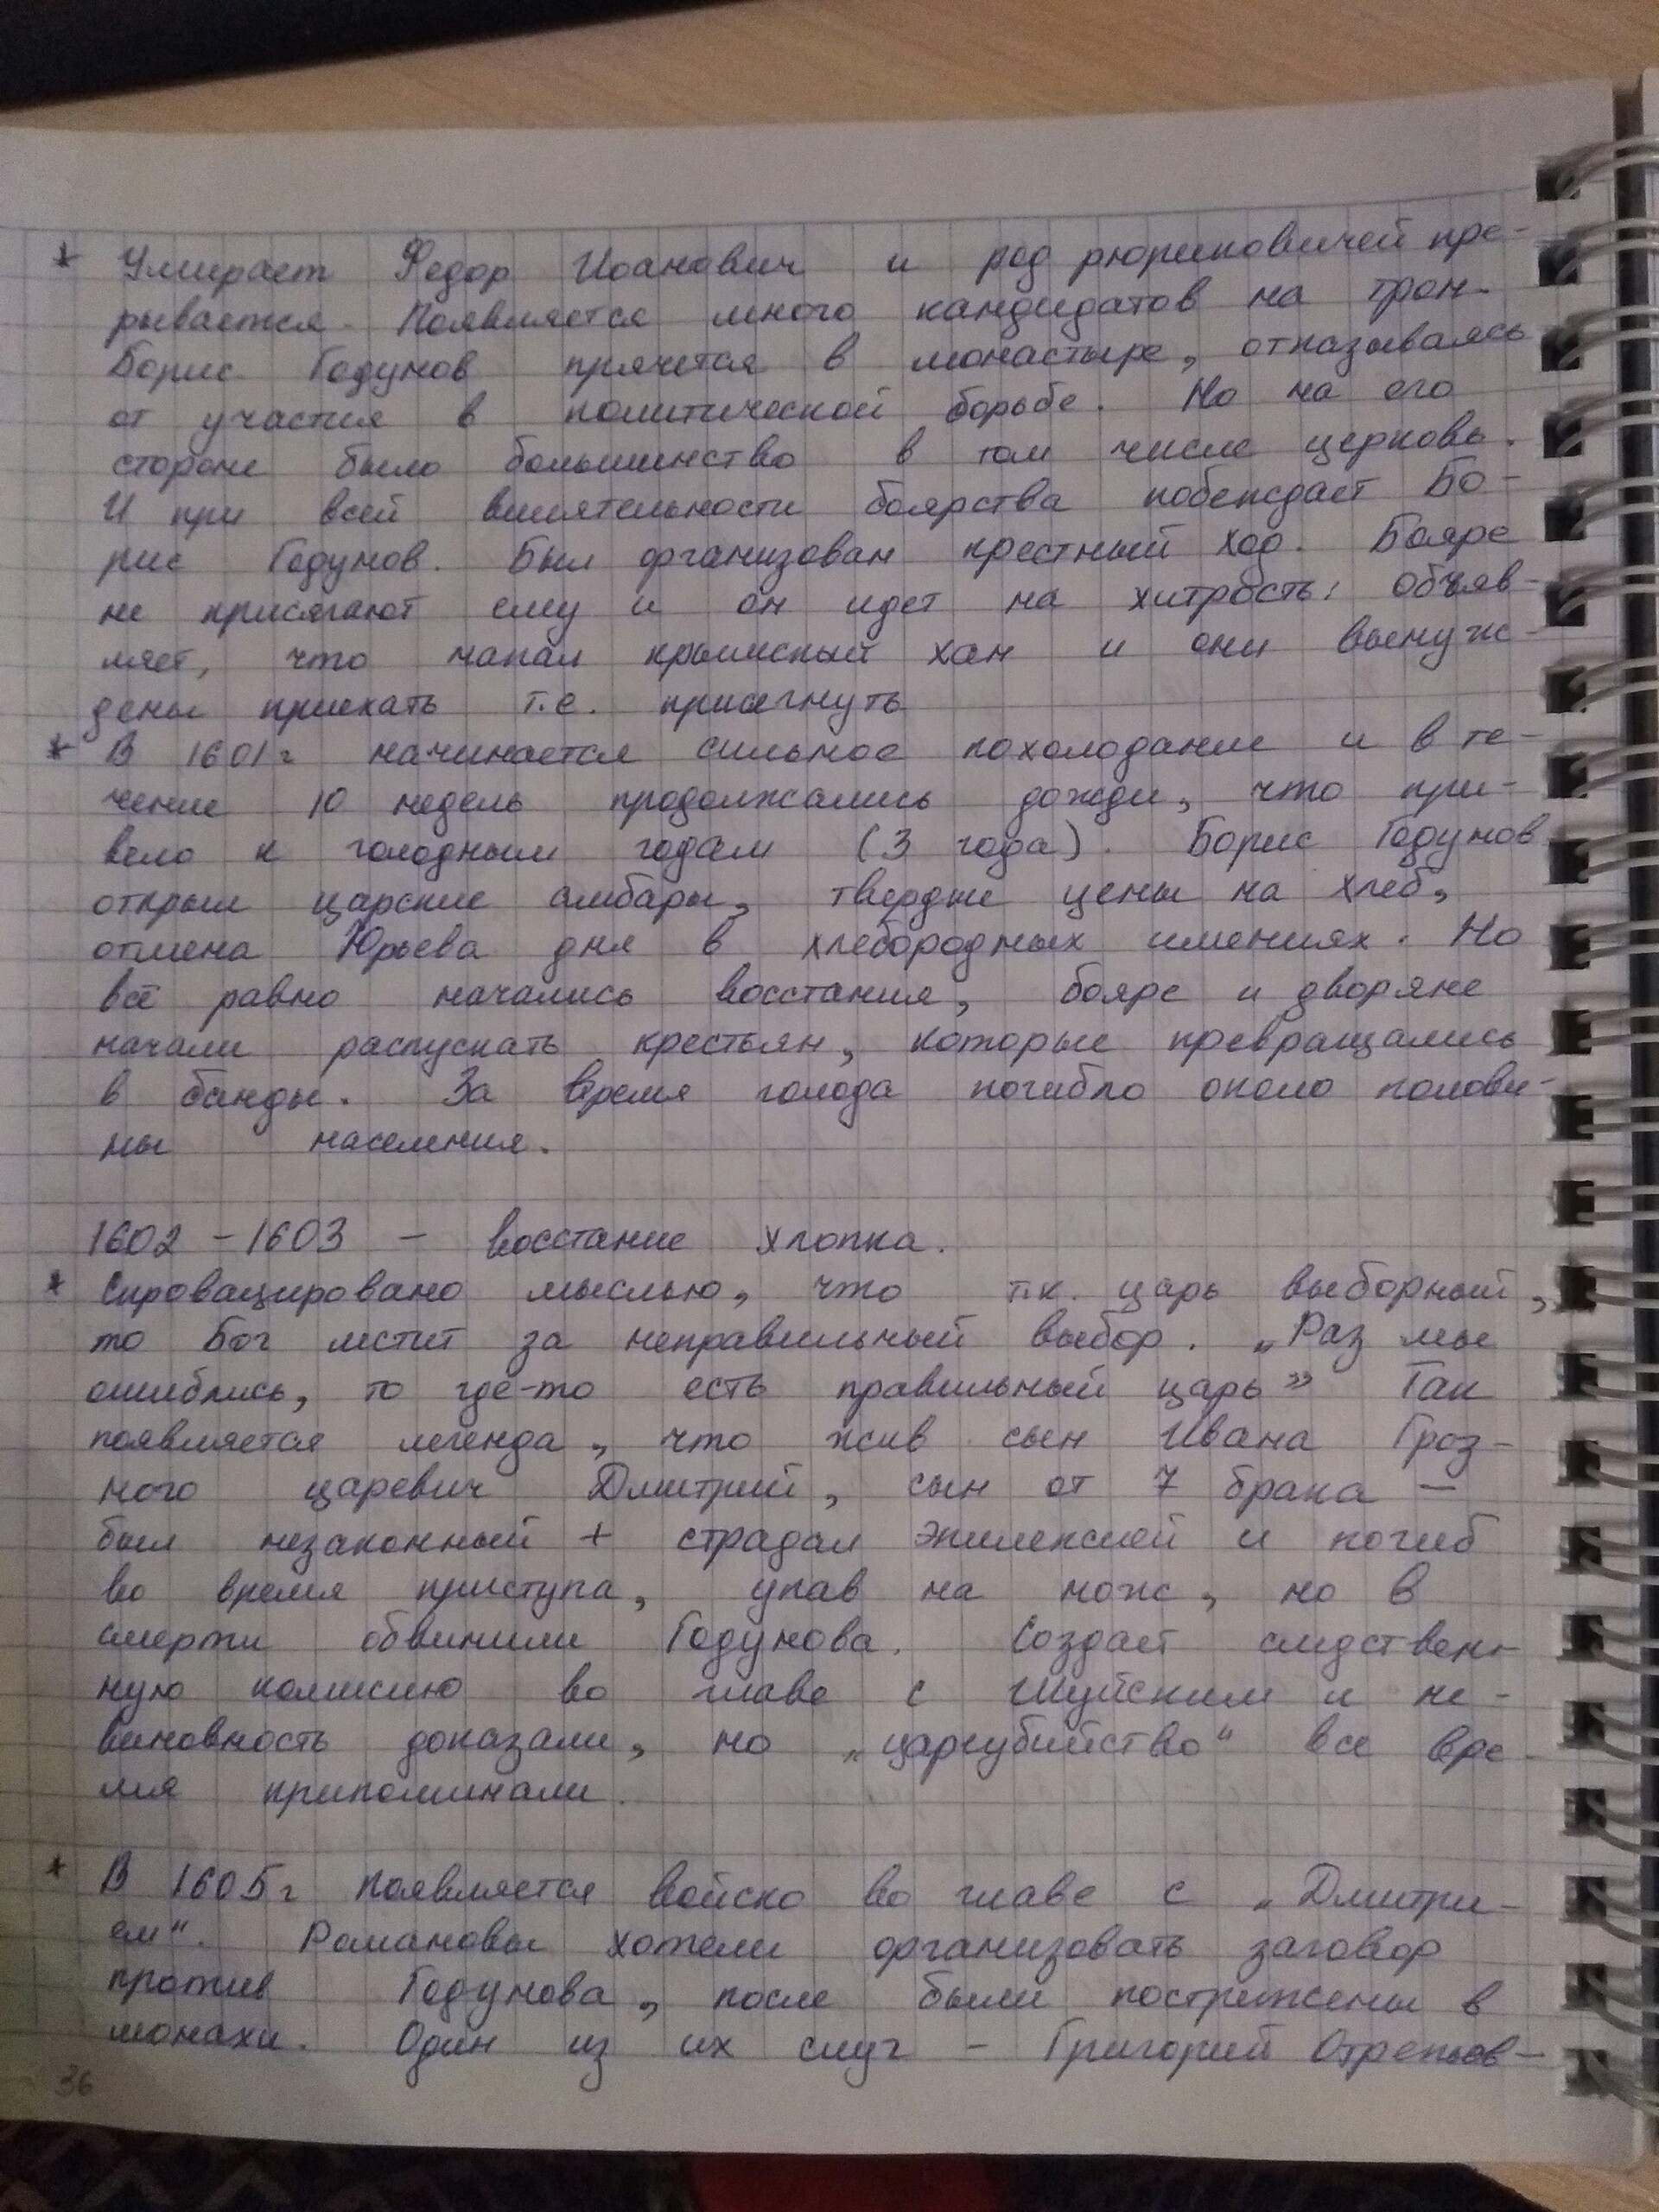 * Умирает Федор Иоанович и род рюриковичей пре-
рывается. Появляется много кандидатов на трон.
Борис Годунов прячется в монастыре, отказываясь
от участия в политической борьбе. Но на его
стороне было большинство в том числе церковь.
И при всей влиятельности боярства побеждает Бо-
рис Годунов. Был организован крестный ход. Бояре
не присягают ему и он идет на хитрость: объяв-
ляет, что напал крымский хан и они вынуж-
дены приехать т.е. присягнуть
* В 1601г начинается сильное похолодание и в те-
чение 10 недель продолжались дожди, что при-
вело к голодным годам (3 года). Борис Годунов
открыл царские амбары, твердые цены на хлеб,
отмена Юрьева дня в хлебородных имениях. Но
всё равно начались восстания, бояре и дворяне
начали распускать крестьян, которые превращались
в банды. За время голода погибло около полови-
ны населения.
1602 - 1603 - восстание хлопка.
* Спровацировано мыслью, что т.к. царь выборный,
то Бог мстит за неправильный выбор. „Раз мы
ошиблись, то где-то есть правильный царь" Так
появляется легенда, что жив сын Ивана Гроз-
ного царевич Дмитрий, сын от 7 брака —
был незаконный + страдал эпилепсией и погиб
во время приступа, упав на нож, но в
смерти обвинили Годунова. Создает следствен-
ную комисию во главе с Шуйским и не-
виновность доказали, но „цареубийство" все вре-
мя припоминали.
* В 1605г появляется войско во главе с „Дмитри-
ем". Романовы хотели организовать заговор
против Годунова, после были пострижены в
монахи. Один из их слуг - Григорий Отрепьев-
36